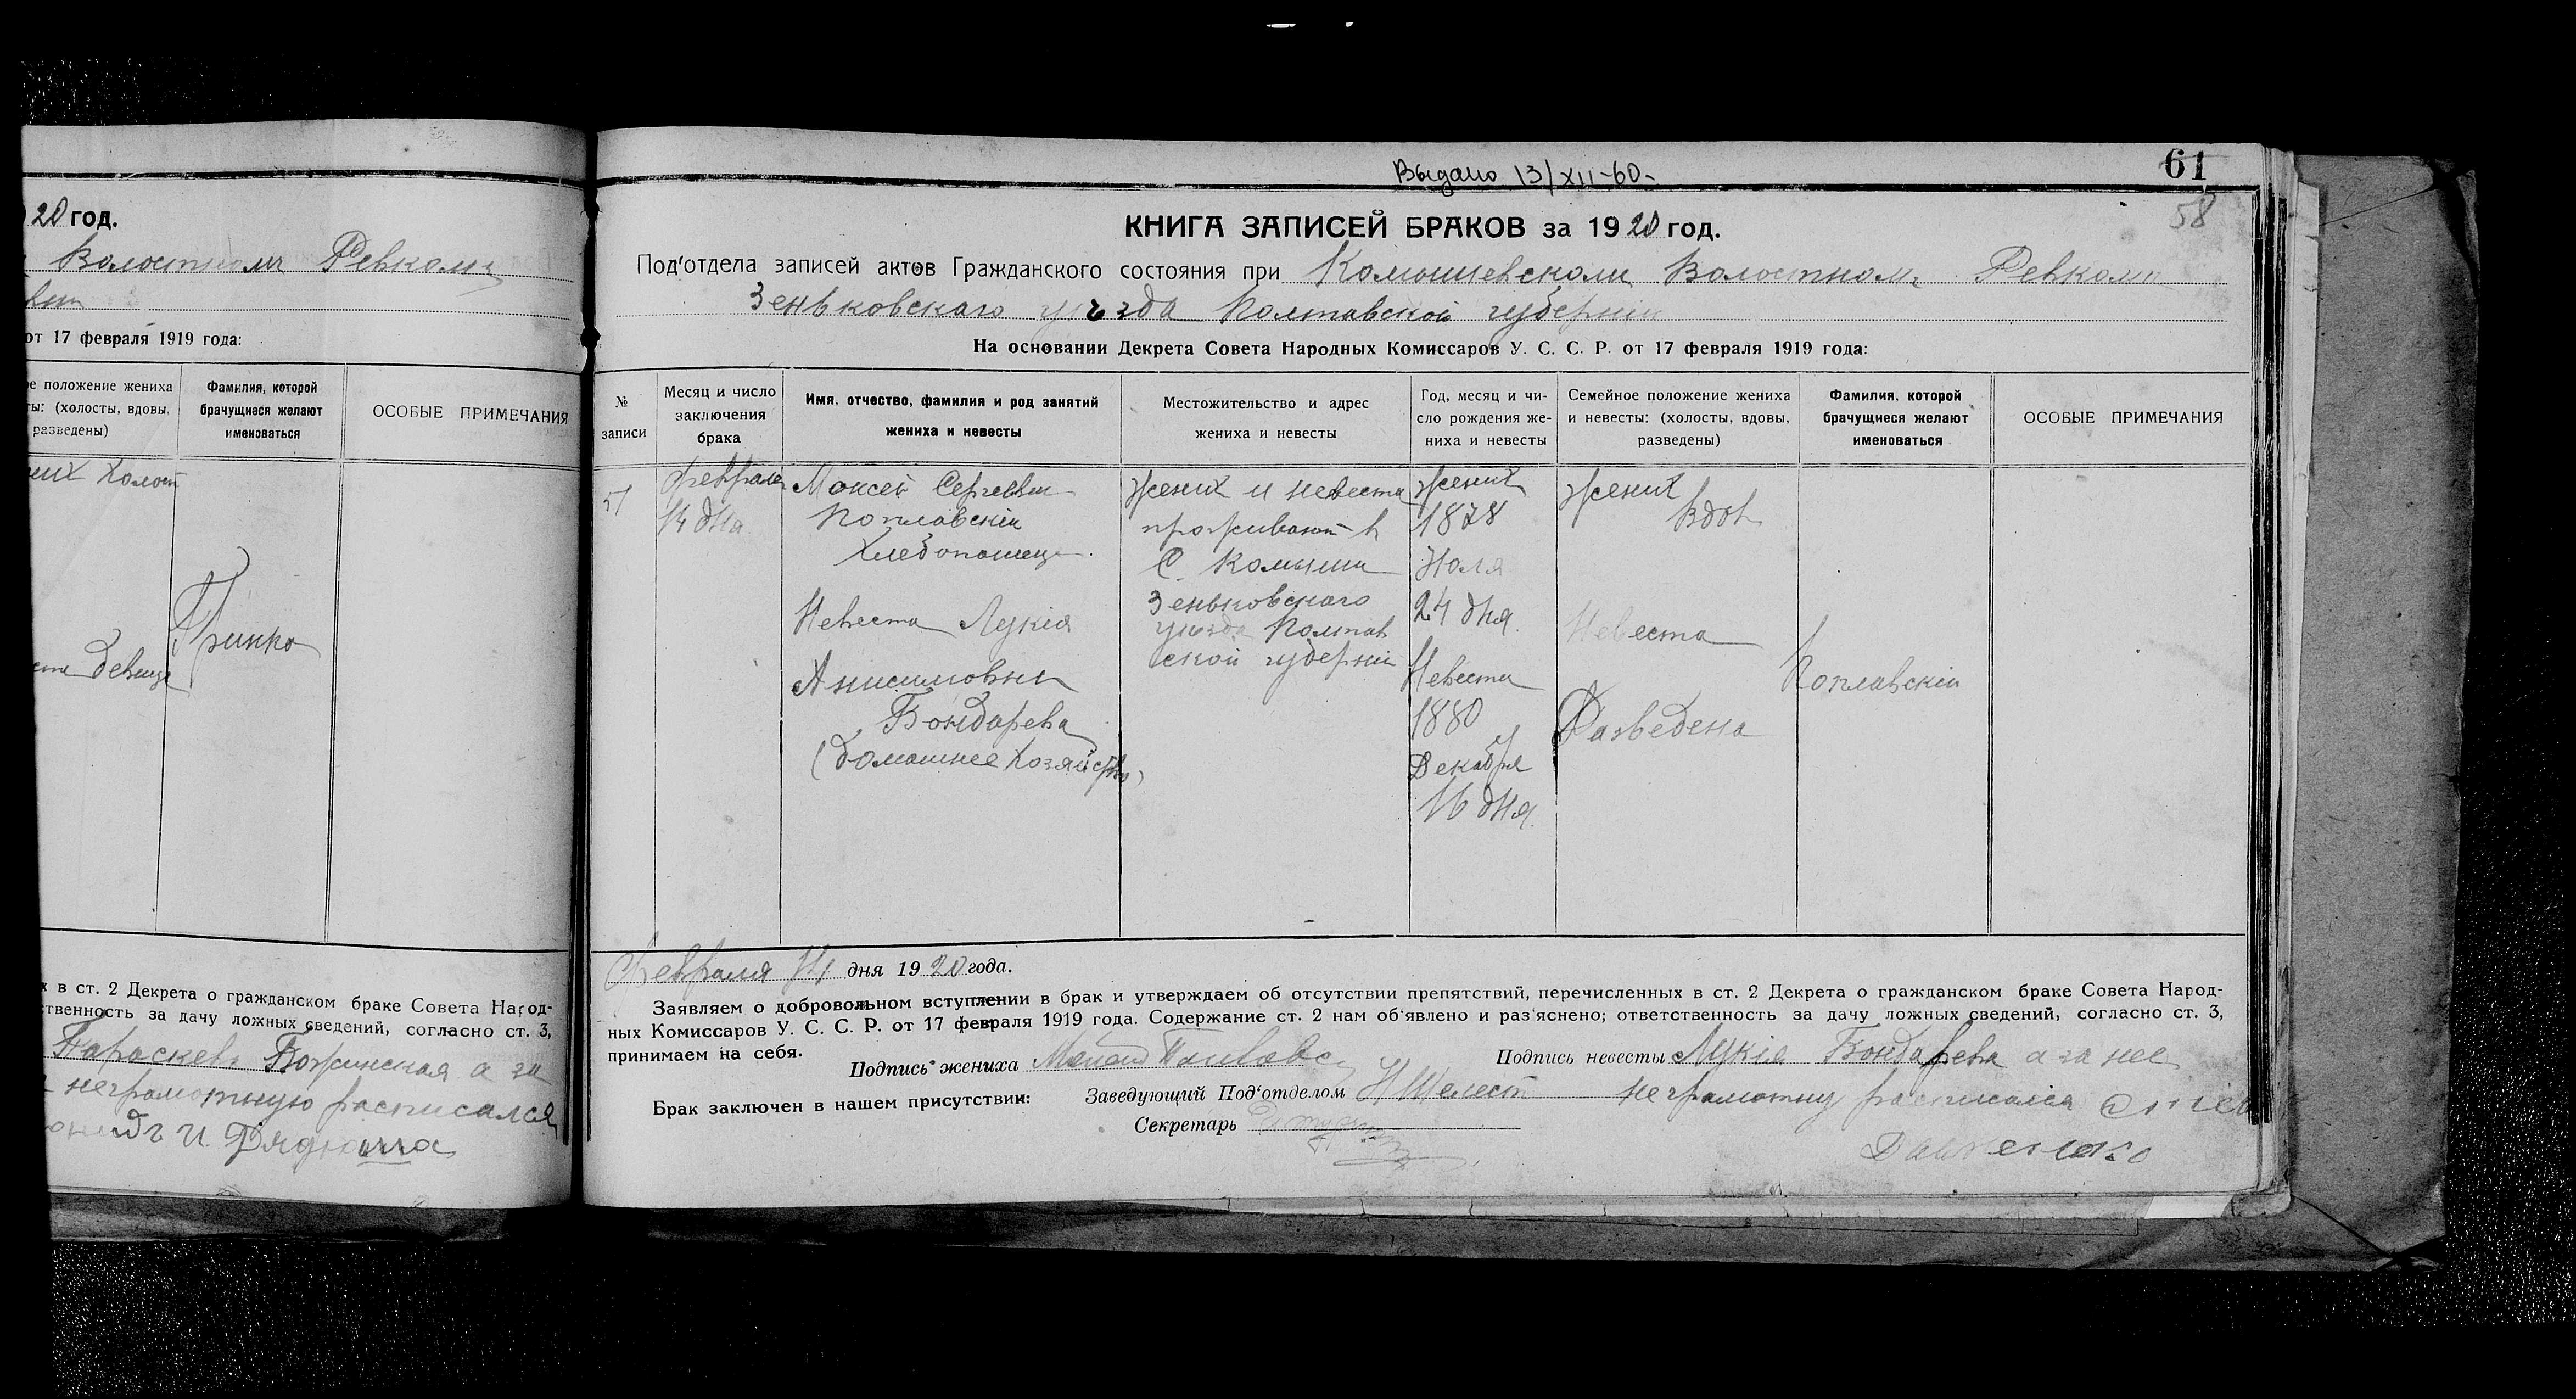 20 год.
Волостномъ Ревкомѣ
от 17 февраля 1919 года:
ое положение жениха
ты: (холосты, вдовы,
разведены)
Фамилия, которой
брачущиеся желают
именоваться
ОСОБЫЕ ПРИМЕЧАНИЯ
них холост
Гринко
девица
х в ст. 2 Декрета о гражданском браке Совета Народ-
тственность за дачу ложных сведений, согласно ст. 3,
Параскева Божинская а за
неграмотную расписался
61
58
Выдано 13/XII-60-
КНИГА ЗАПИСЕЙ БРАКОВ за 1920 год.
Под'отдела записей актов Гражданского состояния при Комышевском Волостном Ревкоме
Зеньковскаго уезда Полтавской губернии
На основании Декрета Совета Народных Комиссаров У. С. С. Р. от 17 февраля 1919 года:
№
записи
Месяц и число
заключения
брака
Имя, отчество, фамилия и род занятий
жениха и невесты
Местожительство и адрес
жениха и невесты
Год, месяц и чи-
сло рождения же-
ниха и невесты
Семейное положение жениха
и невесты: (холосты, вдовы,
разведены)
Фамилия, которой
брачущиеся желают
именоваться
ОСОБЫЕ ПРИМЕЧАНИЯ
51
Февраля
14 дня
Моисей Сергеевич
Поплавскій
Хлебопашец
Невеста Лукія
Анисимовна
Бондарева
(домашнее хозяйство)
Жених и невеста
проживают в
С. Комыши
Зеньковскаго
уезда Полтав
ской губерніи
Жених
1878
Июля
24 дня.
Невеста
1880
Декабря
16 дня.
Жених
Вдов
Невеста
Разведена
Поплавскій
Февраля 14 дня 1920 года.
Заявляем о добровольном вступлении в брак и утверждаем об отсутствии препятствий, перечисленных в ст. 2 Декрета о гражданском браке Совета Народ-
ных Комиссаров У. С. С. Р. от 17 февраля 1919 года. Содержание ст. 2 нам об'явлено и раз'яснено; ответственность за дачу ложных сведений, согласно ст. 3,
принимаем на себя.
Подпись жениха
Подпись невесты Лукія Бондарева а за нее
Брак заключен в нашем присутствии:
Заведующий Под'отделом Н Шелест
неграмотну расписался
Секретарь